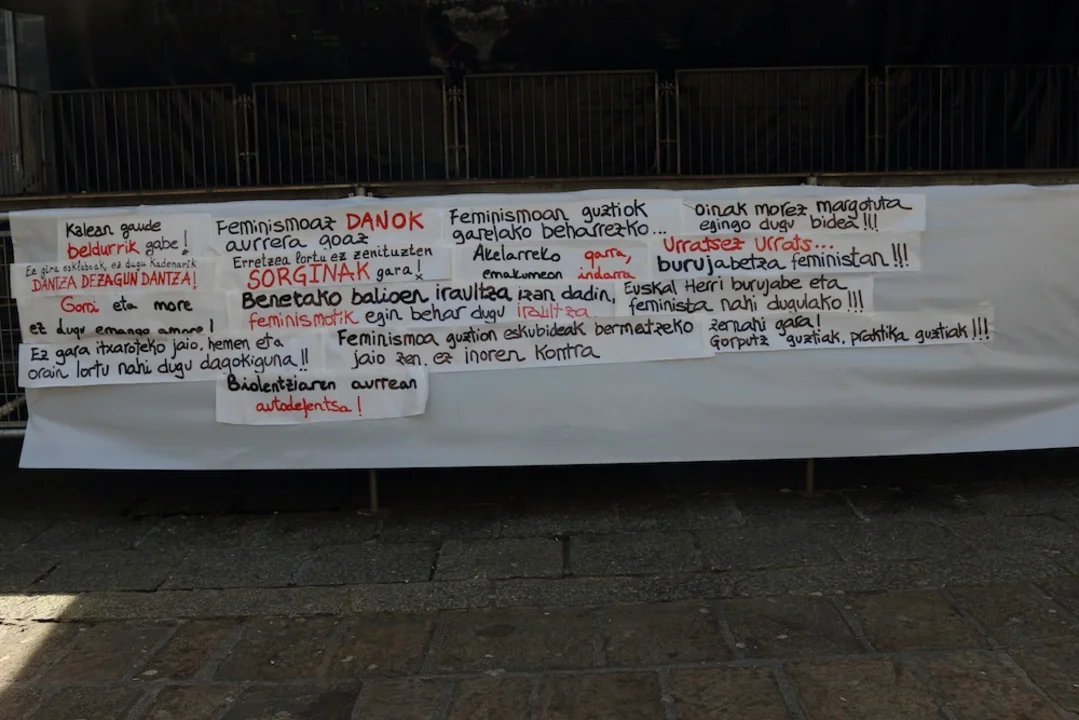 Kalean gaude
beldurrik gabe!
Ez gira esklaboak, ez dugu Kadenarik
DANTZA DEZAGUN DANTZA!
Gorri eta more
ez dugu emango amore!
Ez gara itxaroteko jaio, hemen eta
orain lortu nahi dugu dagokiguna!!
Feminismoaz DANOK
aurrera goaz
Erretzea lortu ez zenituzten
SORGINAK gara!
Benetako balioen iraultza izan dadin,
feminismotik egin behar dugu iraultza
Feminismoa guztion eskubideak bermatzeko
jaio zen, ez inoren kontra
Biolentziaren aurrean
autodefentsa!
Feminismoan guztiok
garelako beharrezko...
Akelarreko garra,
emakumeon indarra
oinak morez margotuta
egingo dugu bidea!!!
Urratsez Urrats...
burujabetza feministan!!!
Euskal Herri burujabe eta
feminista nahi dugulako!!!
zernahi gara!
Gorputz guztiak, praktika guztiak!!!